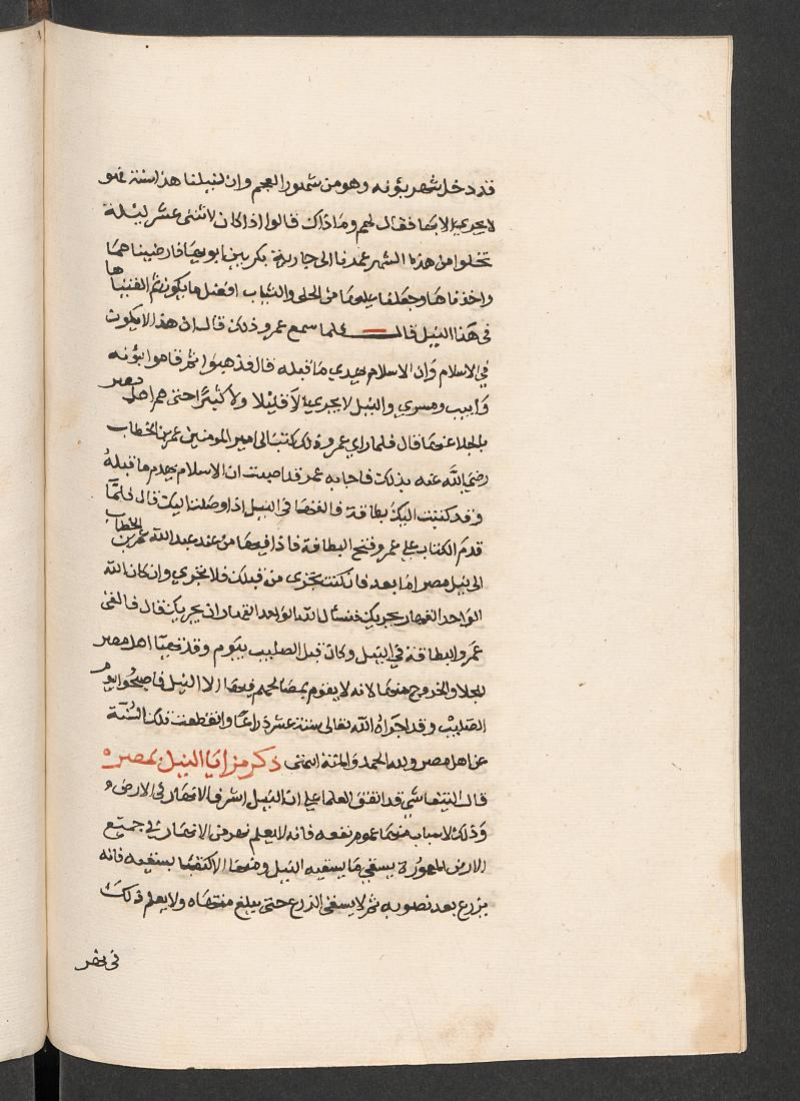 قد دخل شهر بؤنه وهو من شهور العجم وان لنيلنا هذا سنة فهو
لا يجري الا بها فقال لهم وما ذاك قالوا اذا كان لاثنتى عشر ليلة
تخلوا من هذا الشهر عمدنا الى جارية بكر بين ابويها فارضيناهما
واخذناها وجعلنا عليها من الحلى والثياب افضل ما يكون ثم القيناها
فى هذا النيل قال فلما سمع عمرو ذلك قال ان هذا لا يكون
في الاسلام وان الاسلام يهدي ما قبله قال فذهبوا ثم قاموا بؤنه
وأبيب ومسري والنيل لا يجري لا قليلا ولا كثيرا حتى هم اهل مصر
بالجلا عنها قال فلما راى عمرو ذلك كتب الى امير المومنين عمر بن الخطاب
رضي الله عنه بذلك فاجابه عمر قد اصبت ان الاسلام يهدم ما قبله
وقد كتبت اليك بطاقة فالقها فى النيل اذا وصلت اليك قال فلما
قدم الكتاب على عمرو فتح البطاقة فاذا فيها من عند عبد الله عمر بن الخطاب
الى نيل مصر اما بعد فان كنت تجرى من قبلك فلا تجري وان كان الله
الواحد القهار يجريك فنسال الله الواحد القهار ان يجريك قال فالقى
عمرو البطاقة في النيل وكان قبل الصليب بيوم وقد تهيا اهل مصر
للجلا والخروج منها لانه لا يقوم بمصالحهم فيها الا النيل فاصبحوا يوم
الصليب وقد اجراه الله تعالى ستة عشر ذراعا وانقطعت تلك السنة
عن اهل مصر ولله الحمد والمنة انتهى ذكر مزايا النيل بمصر
قال التيفاشي قد اتفق العلما على ان النيل اشرف الانهار فى الارض
وذلك لاسباب منها عموم نفعه فانه لا يعلم نهر من الانهار في جميع
الارض المعمورة يسقي ما يسقيه النيل ومنها الاكتفا بسقيه فانه
يزرع بعد نضوبه ثم لا يسقى الزرع حتى يبلغ منتهاه ولا يعلم ذلك
فى نهر